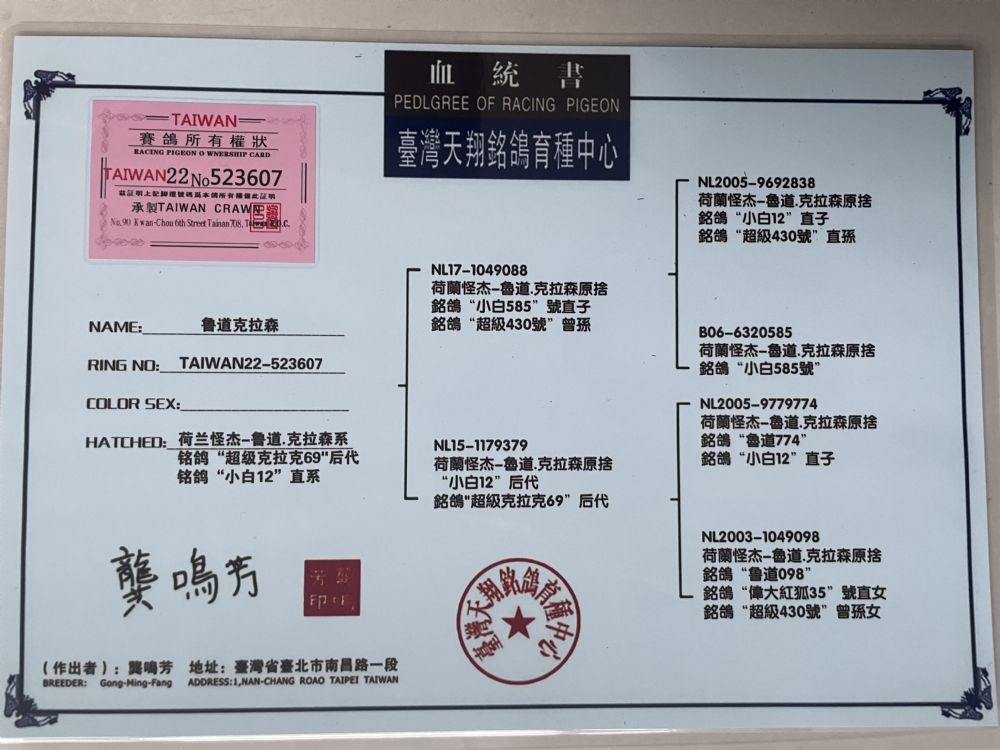 血統書
PEDLGREE OF RACING PIGEON
臺灣天翔銘鴿育種中心
TAIWAN
賽鴿所有權狀
RACING PIGEON O WNERSHIP CARD
TAIWAN22No523607
茲証明上記腳環號碼爲本鴿所有權儘此証明
承製TAIWAN CRAWN
No.90 Kwan-Chou 6th Street Tainan 708, Taiwan R.O.C.
NAME: 魯道克拉森
RING NO: TAIWAN22-523607
COLOR SEX:
HATCHED: 荷兰怪杰-鲁道.克拉森系
铭鸽“超级克拉克69"后代
铭鸽“小白12”直系
NL17-1049088
荷蘭怪杰-魯道.克拉森原捨
銘鴿“小白585”號直子
銘鴿“超級430號”曾孫
NL15-1179379
荷蘭怪杰-魯道.克拉森原捨
“小白12”后代
銘鴿"超級克拉克69”后代
NL2005-9692838
荷蘭怪杰-魯道.克拉森原捨
銘鴿“小白12”直子
銘鴿“超級430號”直孫
B06-6320585
荷蘭怪杰-魯道.克拉森原捨
銘鴿“小白585號”
NL2005-9779774
荷蘭怪杰-魯道.克拉森原捨
銘鴿“魯道774”
銘鴿“小白12”直子
NL2003-1049098
荷蘭怪杰-魯道.克拉森原捨
銘鴿“魯道098”
銘鴿“偉大紅狐35”號直女
銘鴿“超級430號”曾孫女
龔鳴芳
龔鳴芳印
臺灣天翔銘鴿育種中心
(作出者):龔鳴芳 地址:臺灣省臺北市南昌路一段
BREEDER: Gong-Ming-Fang ADDRESS:1,NAN-CHANG ROAO TAIPEI TAIWAN